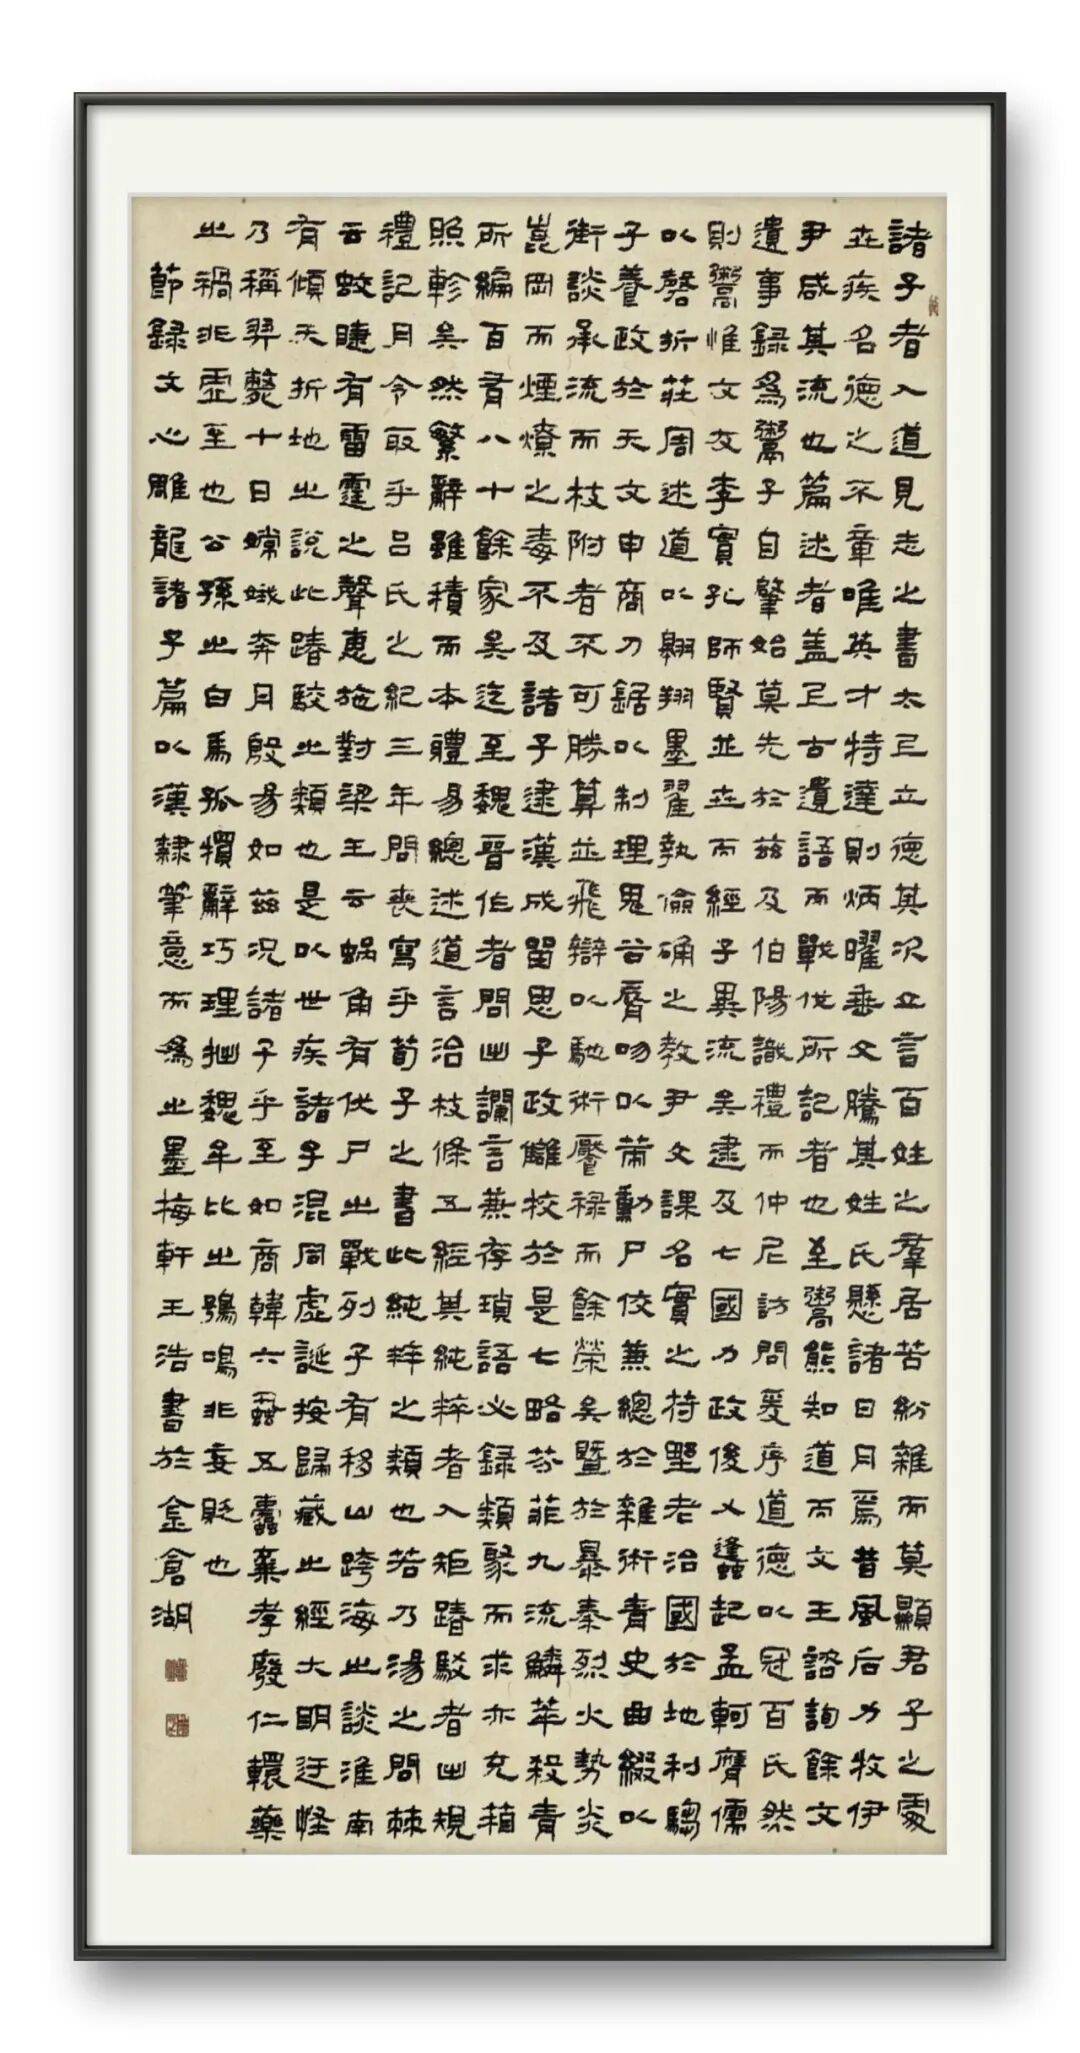 諸子者入道見志之書太上立德其次立言百姓之羣居苦紛雜而莫顯君子之處
世疾名德之不章唯英才特達則炳曜垂文騰其姓氏懸諸日月焉昔風后力牧伊
尹咸其流也篇述者蓋上古遺語而戰代所記者也至鬻熊知道而文王諮詢餘文
遺事録為鬻子自肇始莫先於茲及伯陽識禮而仲尼訪問爰序道德以冠百氏然
則鬻惟文友李實孔師賢並世而經子異流矣逮及七國力政俊乂蠭起孟軻膺儒
以磬折莊周述道以翱翔墨翟執儉确之教尹文課名實之符野老治國於地利騶
子養政於天文申商刀鋸以制理鬼谷脣吻以策勳尸佼兼總於雜術青史曲綴以
街談承流而枝附者不可勝算並飛辯以馳術饜祿而餘榮矣暨於暴秦烈火勢炎
崑岡而煙燎之毒不及諸子逮漢成留思子政讎校於是七略芬菲九流鱗萃殺青
所編百有八十餘家矣迄至魏晉作者間出讕言兼存瑣語必録類聚而求亦充箱
照軫矣然繁辭雖積而本體易總述道言治枝條五經其純粹者入矩踳駁者出規
禮記月令取乎呂氏之紀三年問喪寫乎荀子之書此純粹之類也若乃湯之問棘
云蚊睫有雷霆之聲惠施對梁王云蝸角有伏尸之戰列子有移山跨海之談淮南
有傾天折地之說此踳駁之類也是以世疾諸子混同虛誕按歸藏之經大明迂怪
乃稱羿斃十日嫦娥奔月殷易如茲況諸子乎至如商韓六蝨五蠹棄孝廢仁轘藥
之禍非虛至也公孫之白馬孤犢辭巧理拙魏牟比之鴞鳴非妄貶也
節録文心雕龍諸子篇以漢隸筆意而為之墨梅軒王浩書於金倉湖